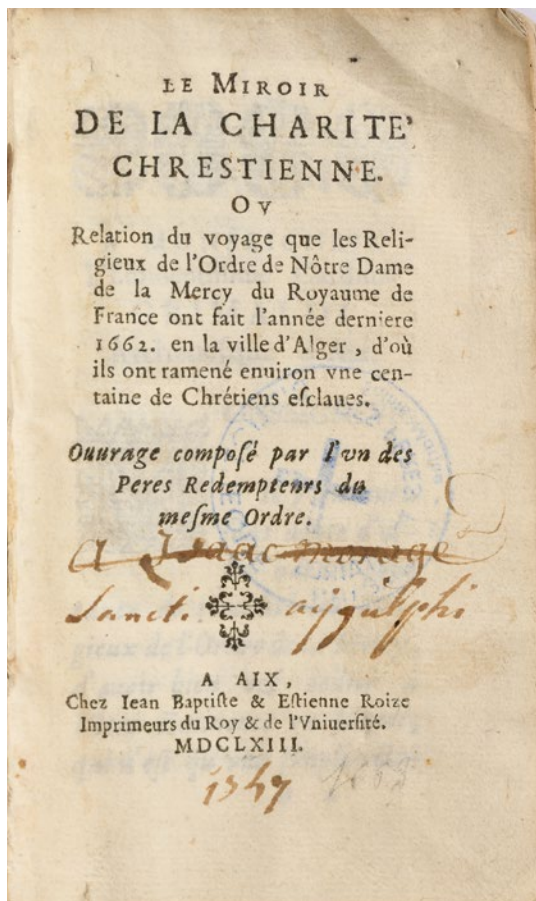 LE MIROIR
DE LA CHARITE'
CHRESTIENNE.
OV
Relation du voyage que les Reli-
gieux de l'Ordre de Nôtre Dame
de la Mercy du Royaume de
France ont fait l'année derniere
1662. en la ville d'Alger, d'où
ils ont ramené enuiron vne cen-
taine de Chrétiens eſclaues.
Ouurage compoſé par l'vn des
Peres Redempteurs du
meſme Ordre.
Sancti aygulphi
A AIX,
Chez Iean Baptiſte & Eſtienne Roize
Imprimeurs du Roy & de l'Vniuerſité.
MDCLXIII.